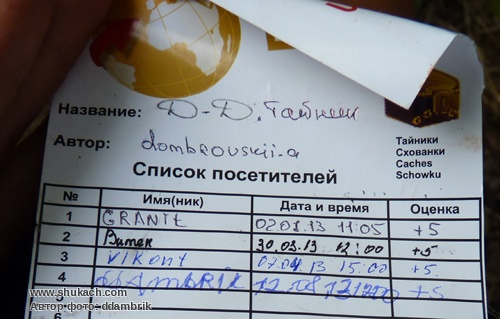 Название: Д-Д. Тайник
Автор: dombrovskii-a
Тайники
Схованки
Caches
Schowku
Список посетителей
№ Имя(ник) Дата и время Оценка
1 GRANIT 02.01.13 11:05 +5
2 Витек 30.03.13 12:00 +5
3 Vikont 07.04.13 15:00 +5
4 ddAMBRIK +5
5
6
www.shukach.com
Автор фото: ddambrik